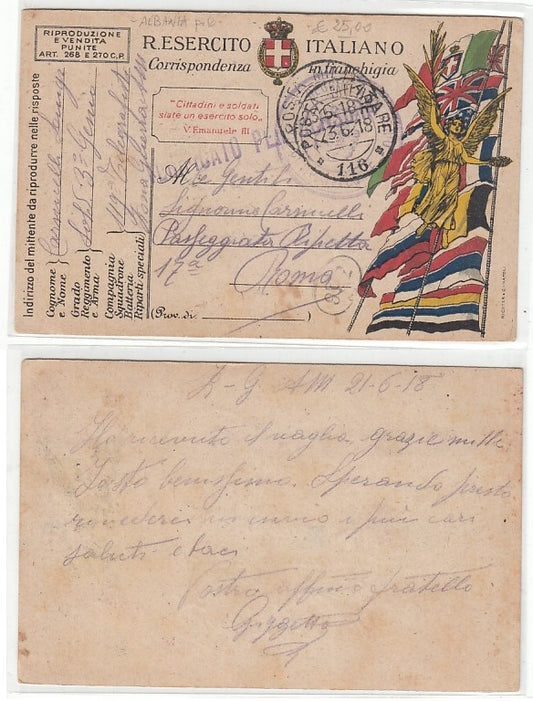 ALBANIA
€ 25,00
RIPRODUZIONE
E VENDITA
PUNITE
ART. 268 E 270 C.P.
R. ESERCITO ITALIANO
Corrispondenza in franchigia
"Cittadini e soldati
siate un esercito solo„
V. Emanuele III
POSTA MILITARE
23.6.18
116
Indirizzo del mittente da riprodurre nelle risposte
Cognome
e Nome
Grado
Reggimento
e Arma
Sold. 3° Genio
Compagnia
Squadrone
Batteria
Reparti speciali
119a Telegrafisti
Alle Gentil
Signorine Carinelli
Passeggiata Ripetta
17a
Roma
(Prov. di
Z-G A M 21-6-18
Ho ricevuto il vaglia grazie mille
Io sto benissimo. Sperando presto
rivedervi vi invio i più cari
saluti e baci
Vostro affmo fratello